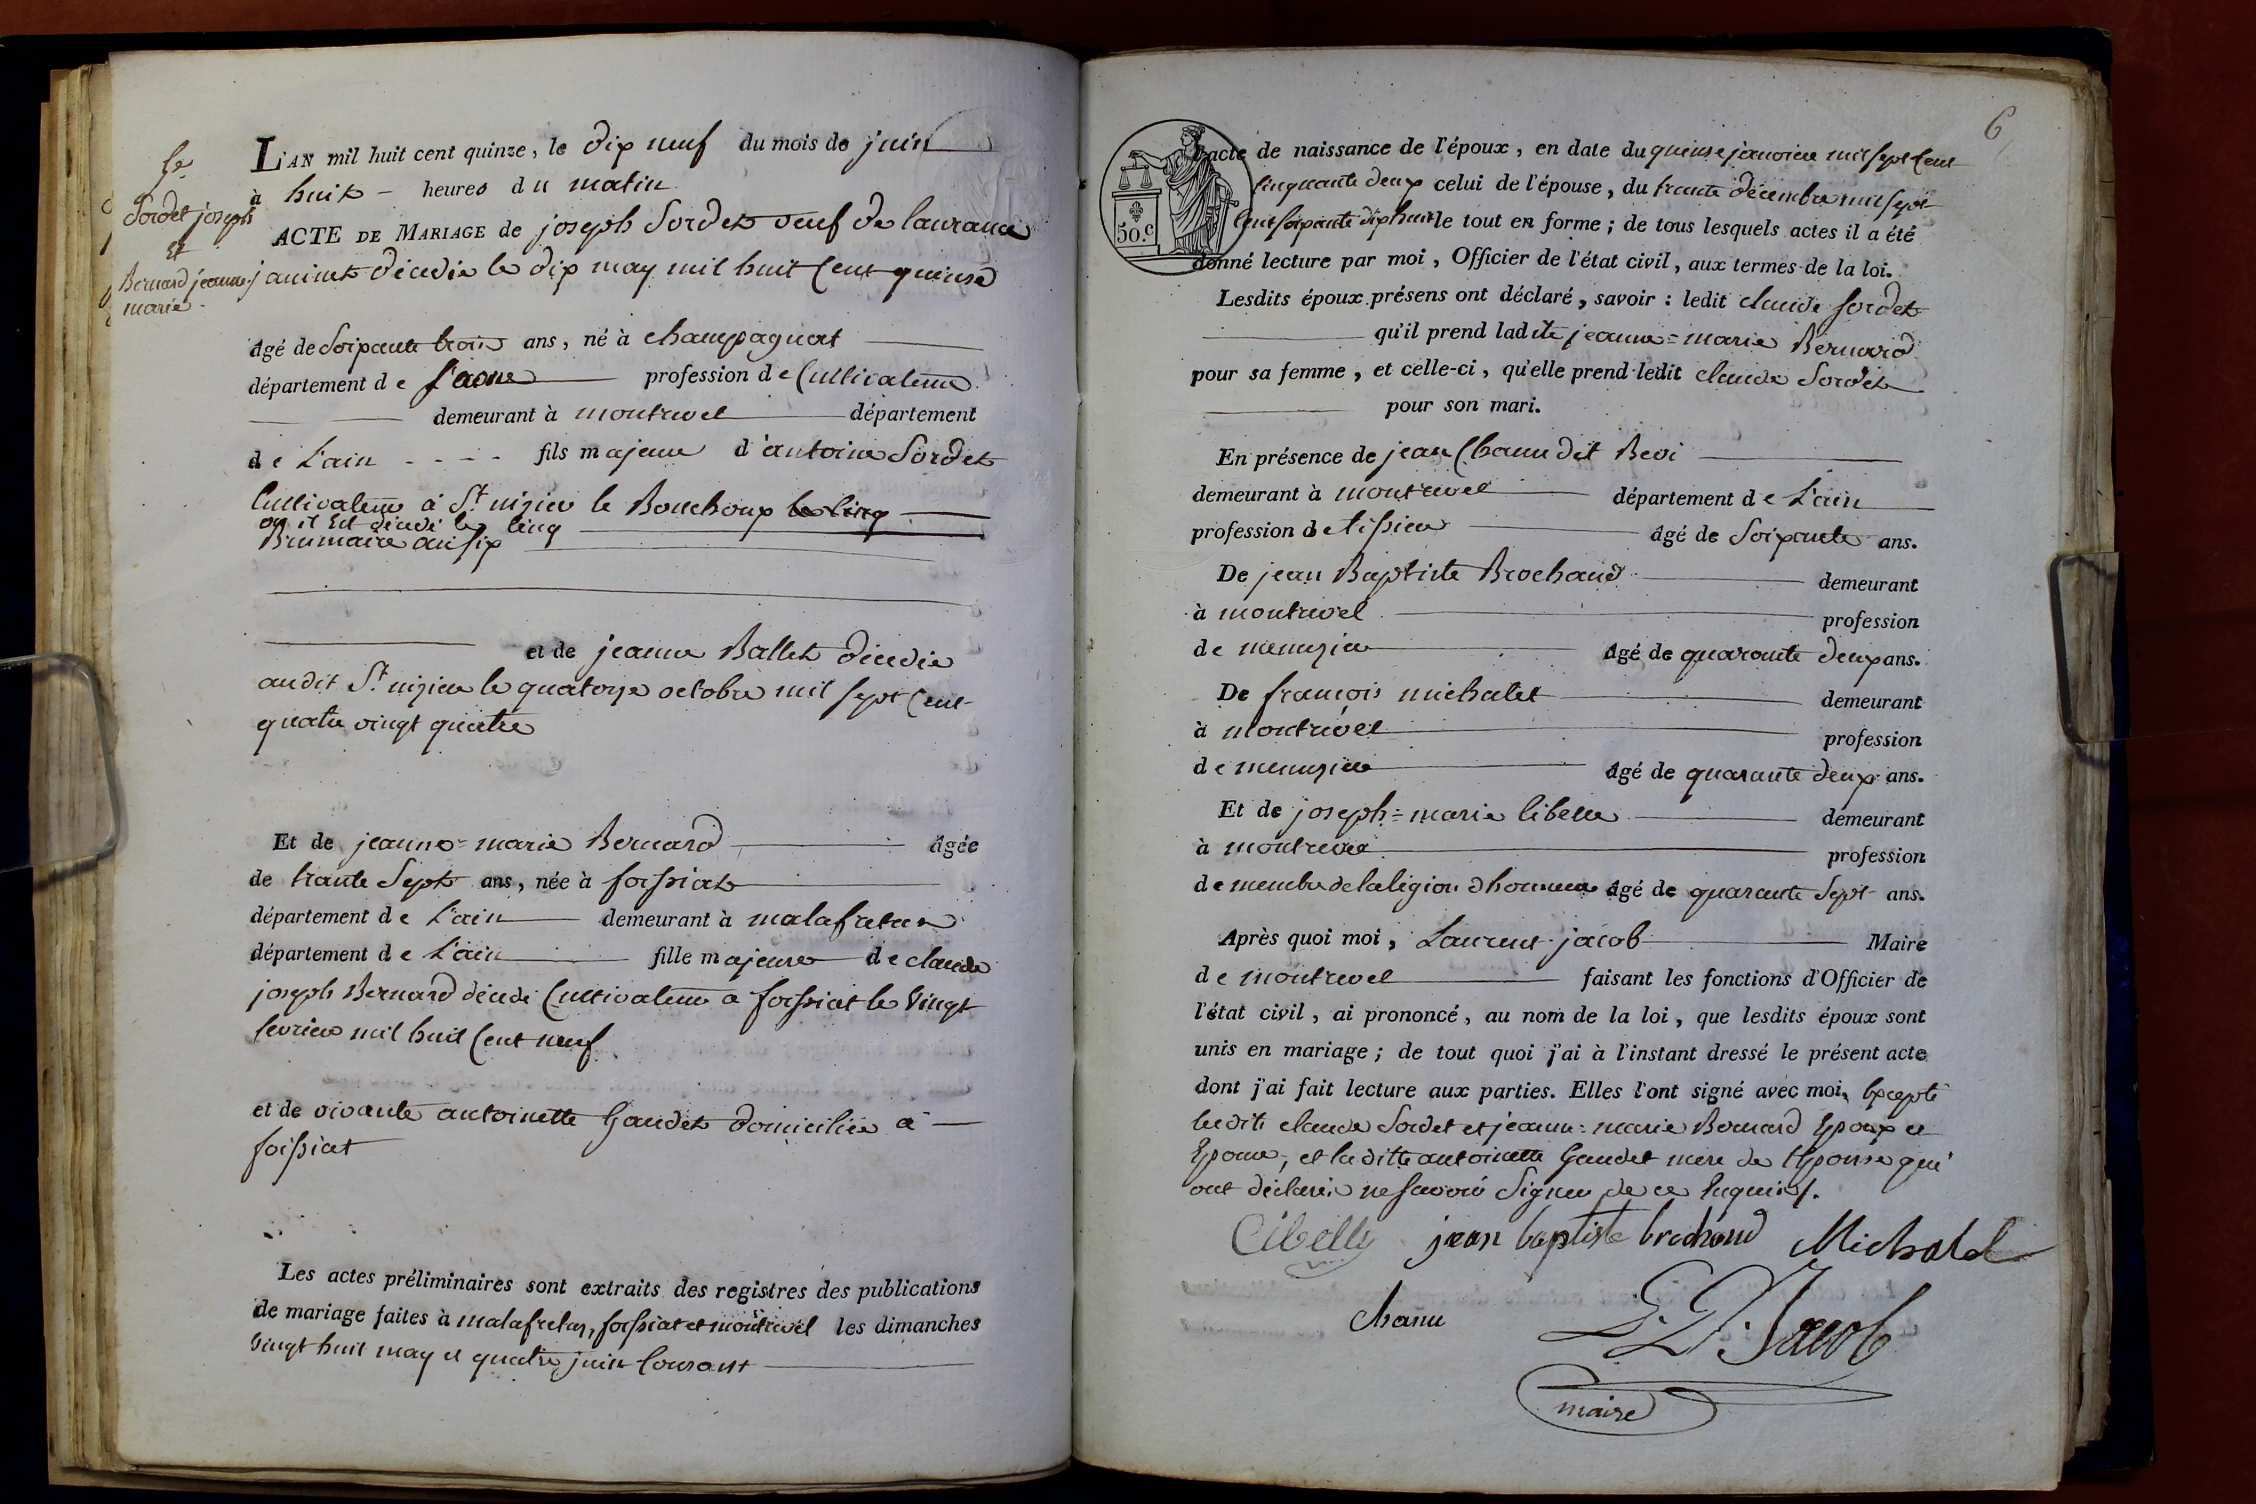 5e
Sordet joseph
Et
Bernard jeanne
marie
L'AN mil huit cent quinze, le dix neuf du mois de juin
à huit heures du matin
ACTE DE MARIAGE de joseph Sordet veuf de laurance
janinet décedée le dix may mil huit Cent quinse
âgé de Soixante trois ans, né à champagnat
département de Saone profession de Cultivateur
demeurant à montrevel département
de L'ain fils majeur d'antoine Sordet
Cultivateur à St. nizier le Bouchoux le cinq
où il Est décédé le cinq
Brumaire an six
et de jeanne Ballet décedée
audit St. nizier le quatorze octobre mil sept Cent
quatre vingt quatre
Et de jeanne=marie Bernard âgée
de trante Sept ans, née à foissiat
département de L'ain demeurant à malafretaz
département de L'ain fille majeure de claude
joseph Bernard décedé Cultivateur a foissiat le Vingt
fevrier mil huit Cent neuf
et de vivante antoinette Gaudet domiciliée à
foissiat
Les actes préliminaires sont extraits des registres des publications
de mariage faites à malafretaz, foissiat et montrevel les dimanches
Vingt huit may et quatre juin Courant
6
50.c
l'acte de naissance de l'époux, en date du quinse janvier mil sept Cent
Cinquante deux celui de l'épouse, du trante décembre mil sept
Cent soixante dix huit le tout en forme; de tous lesquels actes il a été
donné lecture par moi, Officier de l'état civil, aux termes de la loi.
Lesdits époux présens ont déclaré, savoir: ledit claude Sordet
qu'il prend ladite jeanne=marie Bernard
pour sa femme, et celle-ci, qu'elle prend ledit claude Sordet
pour son mari.
En présence de jean Chanu dit Bevi
demeurant à montrevel département de L'ain
profession de tissier âgé de Soixante ans.
De jean Baptiste Brochand demeurant
à montrevel profession
de menuzier âgé de quarante deux ans.
De francois michalet demeurant
à montrevel profession
de menuzier âgé de quarante deux ans.
Et de joseph=marie libelle demeurant
à montrevel profession
de membre de la légion d'honneur âgé de quarante Sept ans.
Après quoi moi, Laurent jacob Maire
de montrevel faisant les fonctions d'Officier de
l'état civil, ai prononcé, au nom de la loi, que lesdits époux sont
unis en mariage; de tout quoi j'ai à l'instant dressé le présent acte
dont j'ai fait lecture aux parties. Elles l'ont signé avec moi, Excepté
lesdits claude Sordet et jeanne=marie Bernard Epoux et
Epouse, et la ditte antoinette Gaudet mere de l'Epouse qui
ont déclaré ne savoir Signer de ce Enquis.
Cibelly jean baptiste brochand Michalet
chanu L. D. Jacob
maire